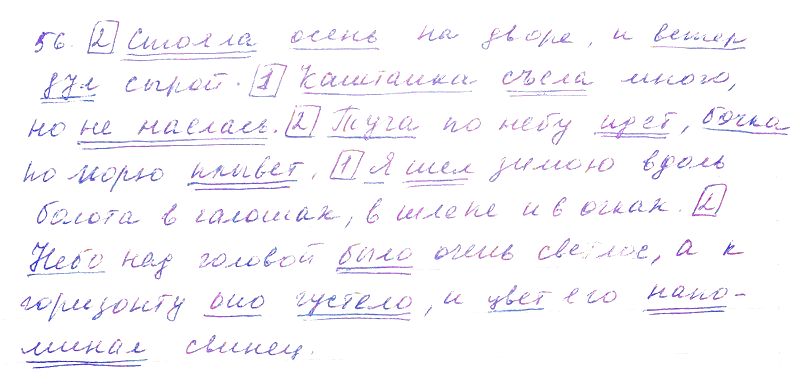 56. 2 Стояла осень на дворе, и ветер
дул сырой. 1 Каштанка съела много,
но не наелась. 2 Туча по небу идет, бочка
по морю плывет. 1 Я шел зимою вдоль
болота в галошах, в шляпе и в очках. 2
Небо над головой было очень светлое, а к
горизонту оно густело, и цвет его напо-
минал свинец.